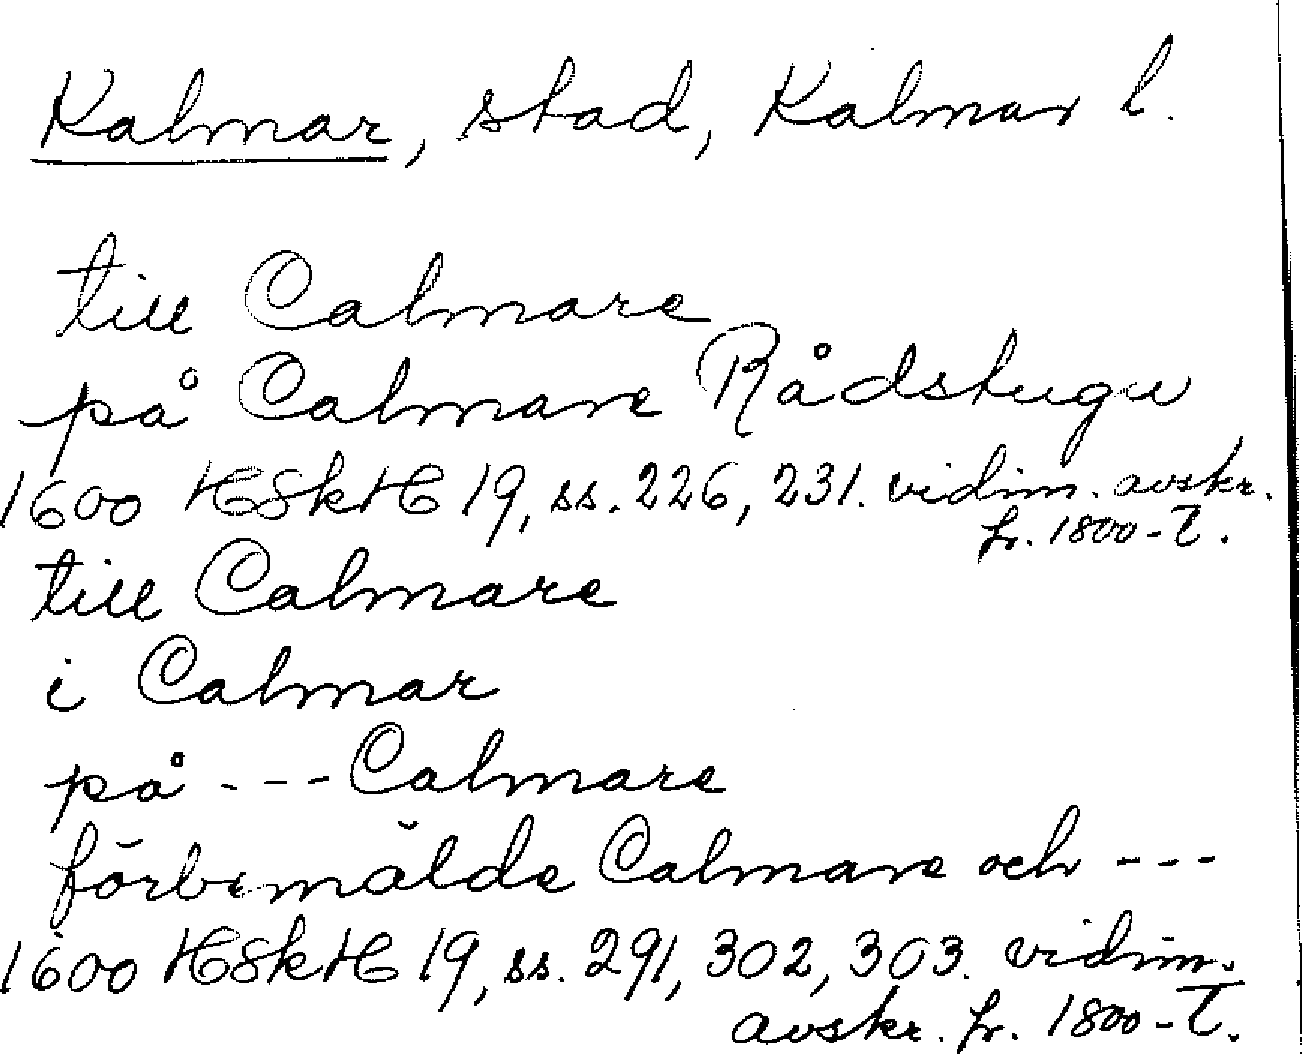 Kalmar, stad, Kalmar l.
till Calmare
på Calmare Rådstugu
1600 HSkH 19, ss. 226, 231. vidim. avskr.
fr. 1800-t.
till Calmare
i Calmar
på --- Calmare
förbemälde Calmare och ---
1600 HSkH 19, ss. 291, 302, 303. vidim.
avskr. fr. 1800-t.